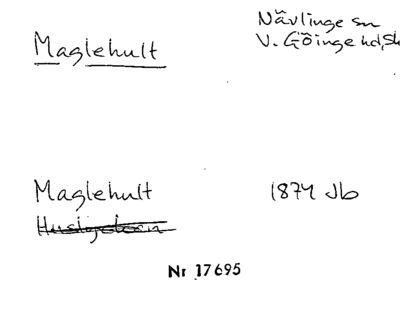 Maglehult
Nävlinge sn
V. Göinge hd, Sk
Maglehult
1874 Jb
Nr 17695